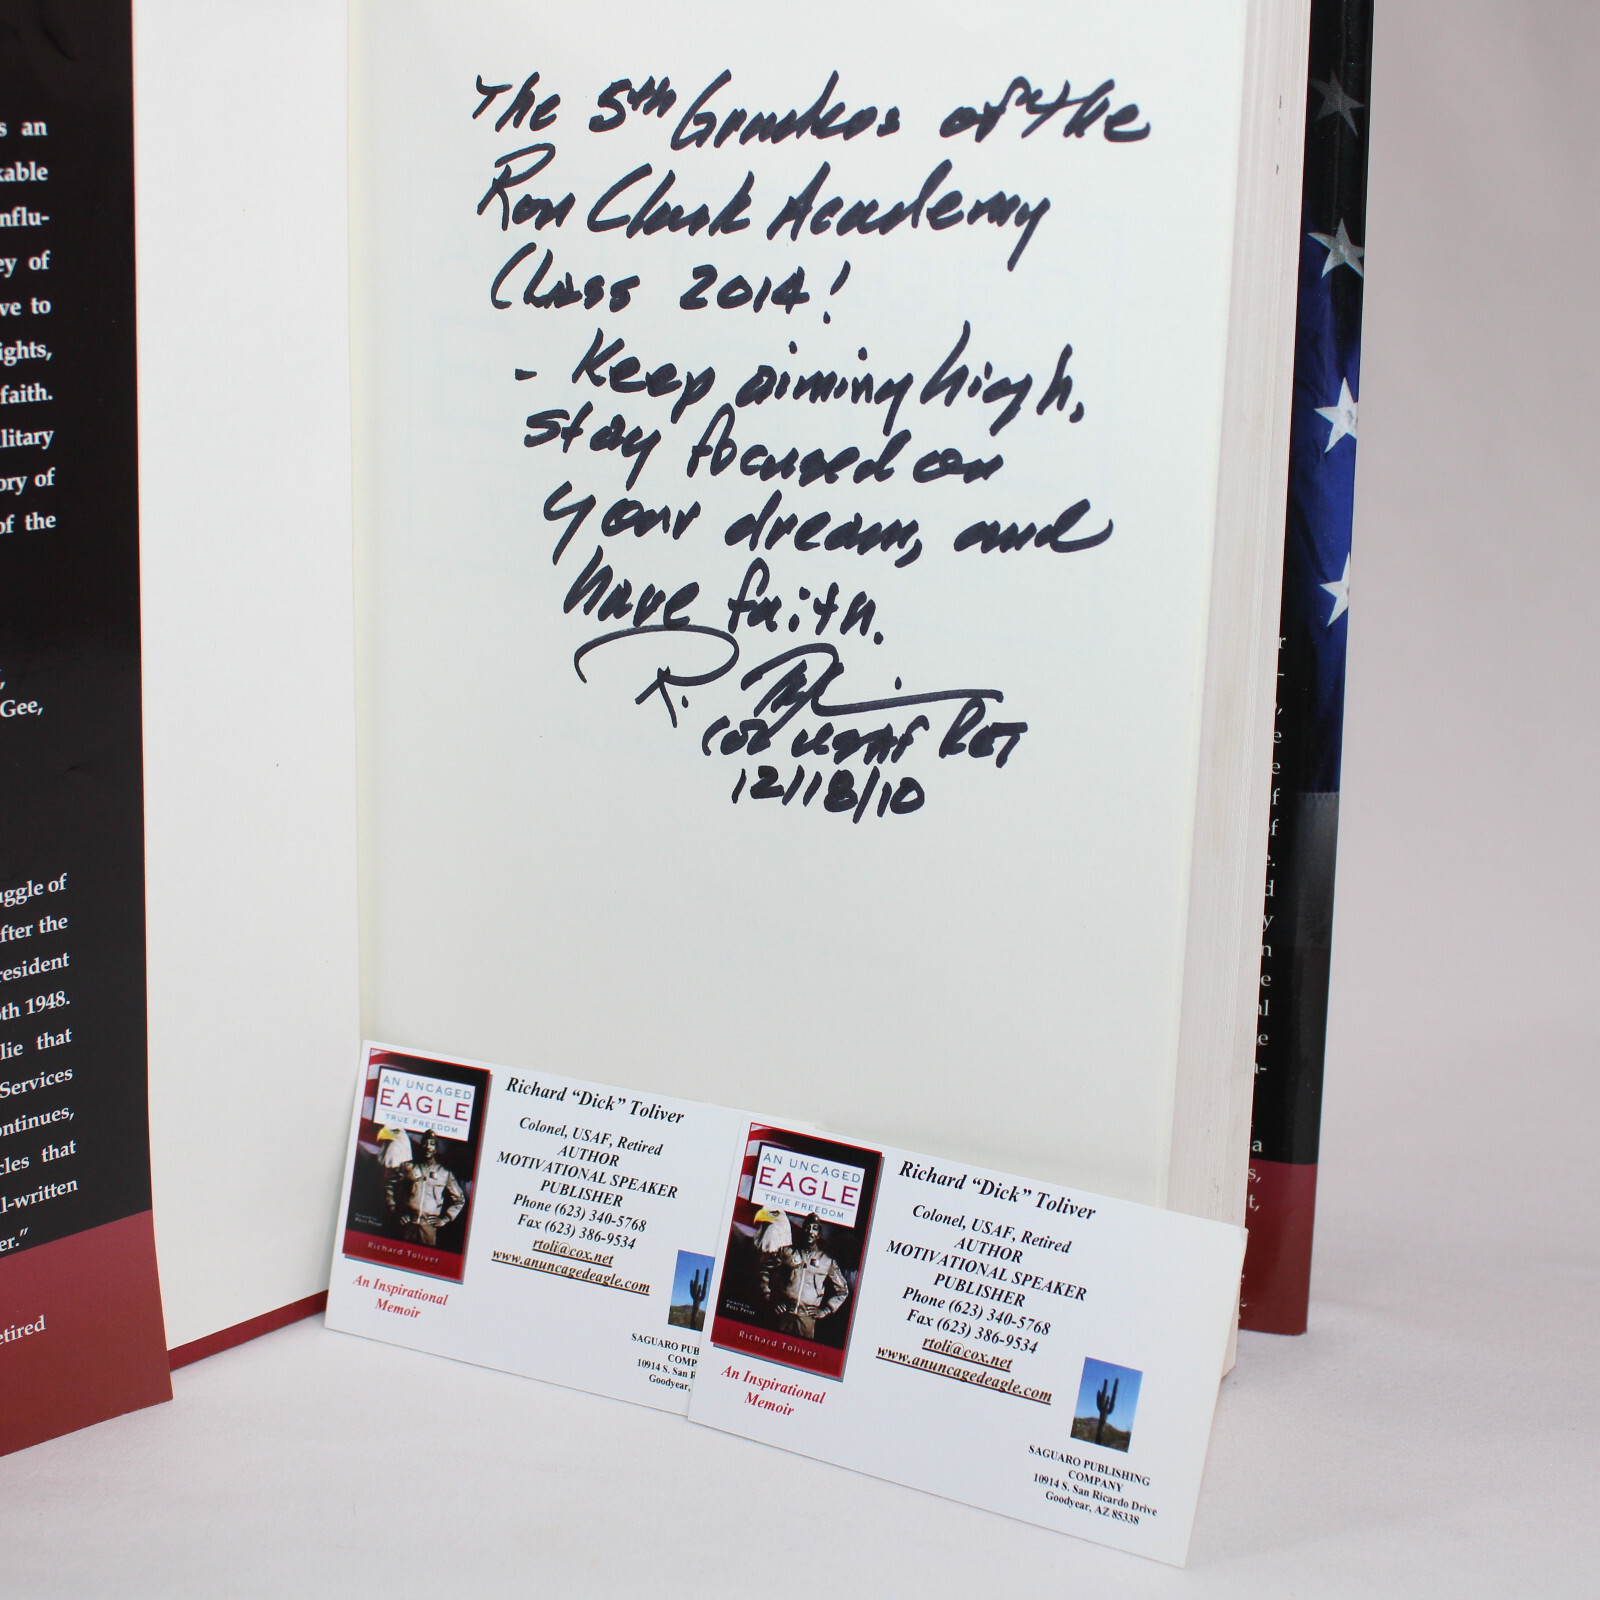 s an
kable
nflu-
ey of
ve to
ights,
faith.
litary
ory of
of the
,
Gee,
uggle of
fter the
resident
oth 1948.
lie that
Services
ontinues,
cles that
l-written
er."
etired
The 5th Graders of the
Ron Clark Academy
Class 2014!
- Keep aiming high,
stay focused on
your dream, and
have faith.
R. Toliver
COL USAF RET
12/18/10
AN UNCAGED
EAGLE
TRUE FREEDOM
Foreword by
Ross Perot
Richard Toliver
An Inspirational
Memoir
Richard "Dick" Toliver
Colonel, USAF, Retired
AUTHOR
MOTIVATIONAL SPEAKER
PUBLISHER
Phone (623) 340-5768
Fax (623) 386-9534
rtoli@cox.net
www.anuncagedeagle.com
SAGUARO PUB
COMP
10914 S. San R
Goodyear,
AN UNCAGED
EAGLE
TRUE FREEDOM
Foreword by
Ross Perot
Richard Toliver
An Inspirational
Memoir
Richard "Dick" Toliver
Colonel, USAF, Retired
AUTHOR
MOTIVATIONAL SPEAKER
PUBLISHER
Phone (623) 340-5768
Fax (623) 386-9534
rtoli@cox.net
www.anuncagedeagle.com
SAGUARO PUBLISHING
COMPANY
10914 S. San Ricardo Drive
Goodyear, AZ 85338